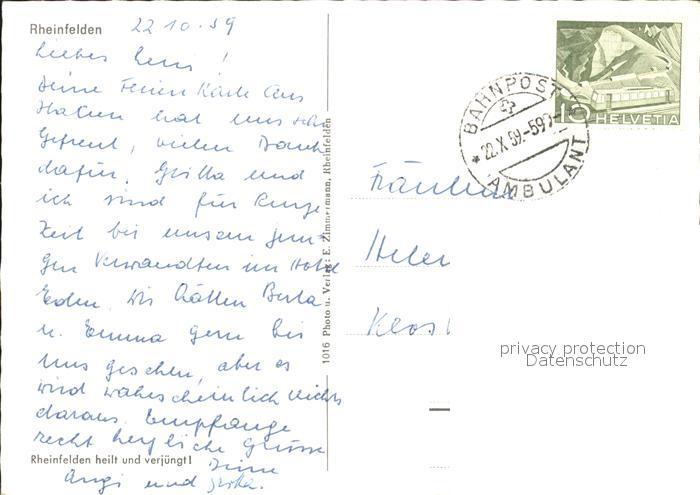 Rheinfelden
22 10.59
Liebes Leni!
Deine Ferien Karte aus
Italien hat uns sehr
gefreut, vielen Dank
dafür. Gritta und
ich sind für kurze
Zeit bei unsern
gen Verwandten im Hotel
Eden. Wir hätten Berta
u. Emma gern bei
uns gesehen, aber es
wird wahrscheinlich nichts
daraus. Empfange
recht herzliche Grüsse
Deine
und
Rheinfelden heilt und verjüngt!
1016 Photo u. Verlag: E. Zimmermann, Rheinfelden
BAHNPOST
22.X.59-590
AMBULANT
10 HELVETIA
Fräulein
Helen
Klos
privacy protection
Datenschutz